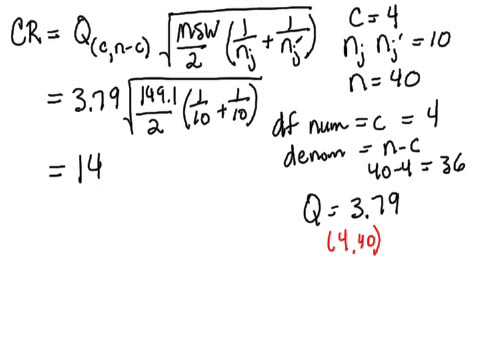 CR = Q(c,n-c) √(MSW/2 (1/nj + 1/nj'))
= 3.79 √(149.1/2 (1/10 + 1/10))
= 14
c = 4
nj nj' = 10
n = 40
df num = c = 4
denom = n-c
40-4 = 36
Q = 3.79
(4,40)